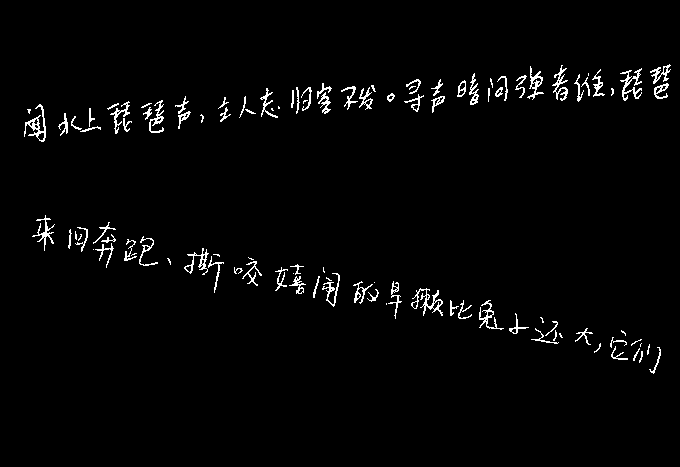 闻水上琵琶声,主人忘归客不发。寻声暗问弹者谁,琵琶
来回奔跑、撕咬嬉闹的旱獭比兔子还大,它们